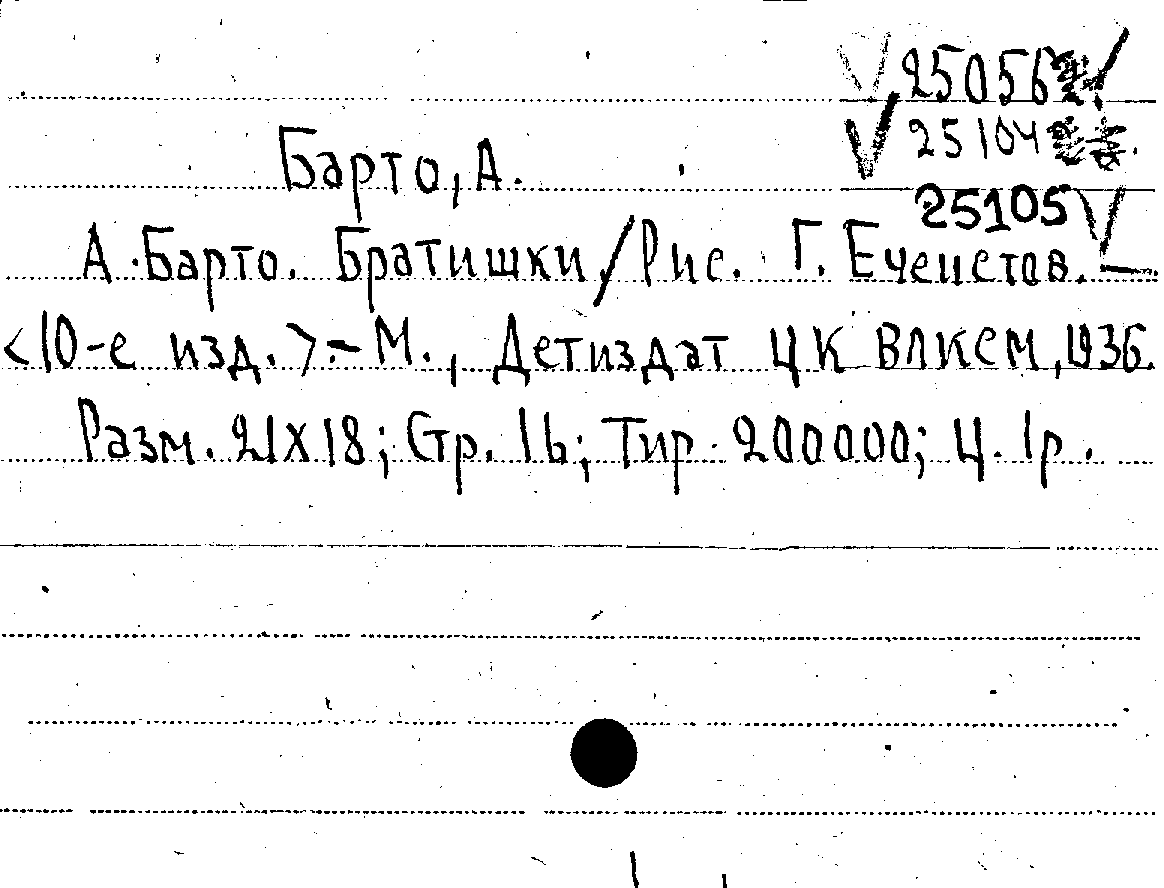 25056
25104
Барто, А.
25105
А. Барто. Братишки / Рис. Г. Ечеистов. –
<10-е изд.>. – М., Детиздат ЦК ВЛКСМ, 1936.
Разм. 21X18; Стр. 16; Тир. 200000; Ц. 1р.